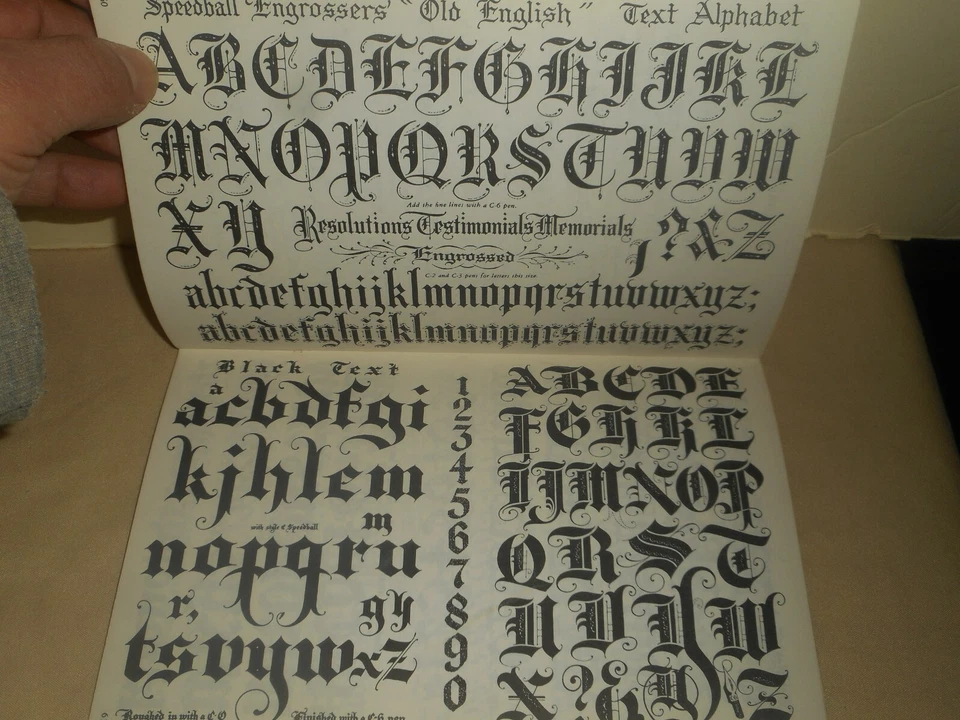 Speedball Engrossers "Old English" Text Alphabet
ABCDEFGHIJKL
MNOPQRSTUVW
Add the fine lines with a C-6 pen.
XY Resolutions Testimonials Memorials ;?&Z
Engrossed
C-2 and C-3 pens for letters this size
abcdefghijklmnopqrstuvwxyz;
abcdefghijklmnopqrstuvwxyz;
Black Text
a
acbdfgi
kjhlem
m
with style C Speedball
nopqru
r, gy
tsvywxz
Roughed in with a C-0 Finished with a C-6 pen
1
2
3
4
5
6
7
8
9
0
ABCDE
FGHKL
IJMNOP
QRST
UVYW
X?&Z